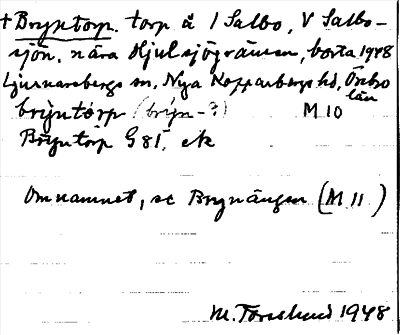 + Bryntorp. torp å 1 Salbo, V Salbo-
sjön, nära Hjulsjögränsen, borta 1948
Ljusnarsbergs sn, Nya Kopparbergs hd, Örebro
län
bry̆ntórp (bry̆n-?) M 10
Bryntorp G 81, ek
Om namnet, se Brynängen (M 11)
M. Forslund 1948